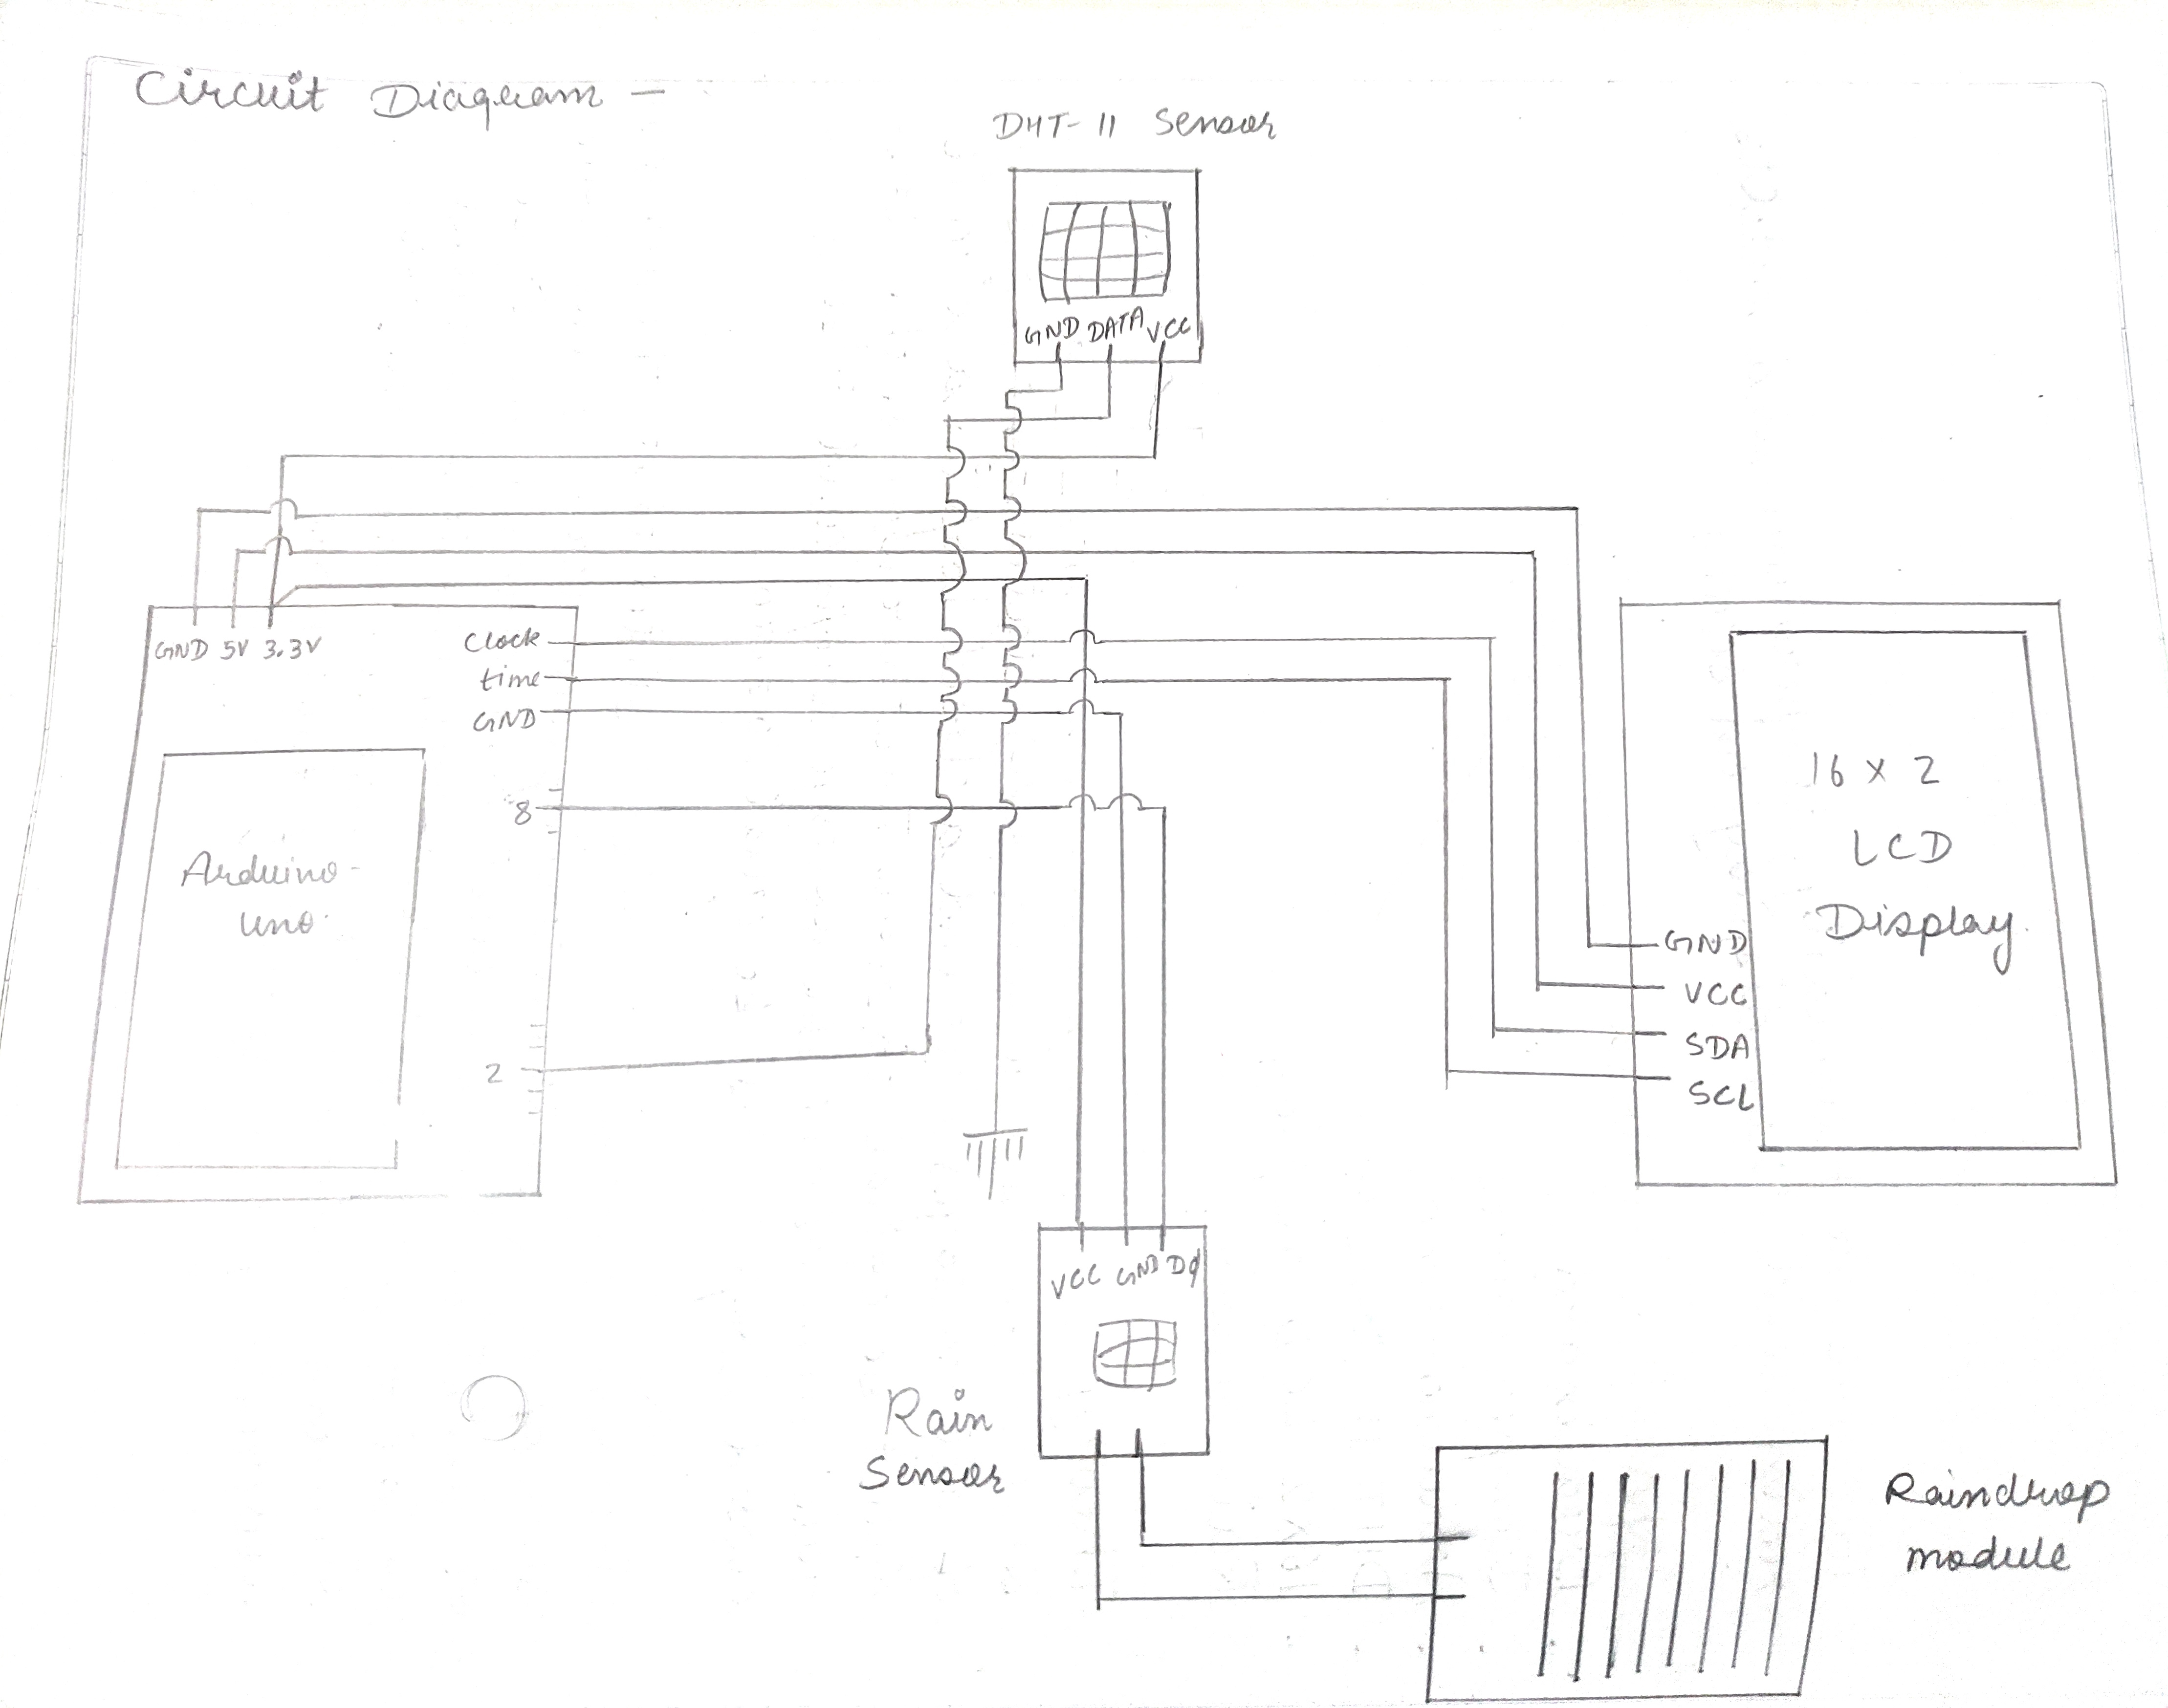 Circuit Diagram -
DHT-11 Sensor
GND DATA VCC
GND 5V 3.3V
Clock
time
GND
8
Arduino-
uno.
2
16 x 2
LCD
Display.
GND
VCC
SDA
SCL
VCC GND DO
Rain
Sensor
Raindrop
module